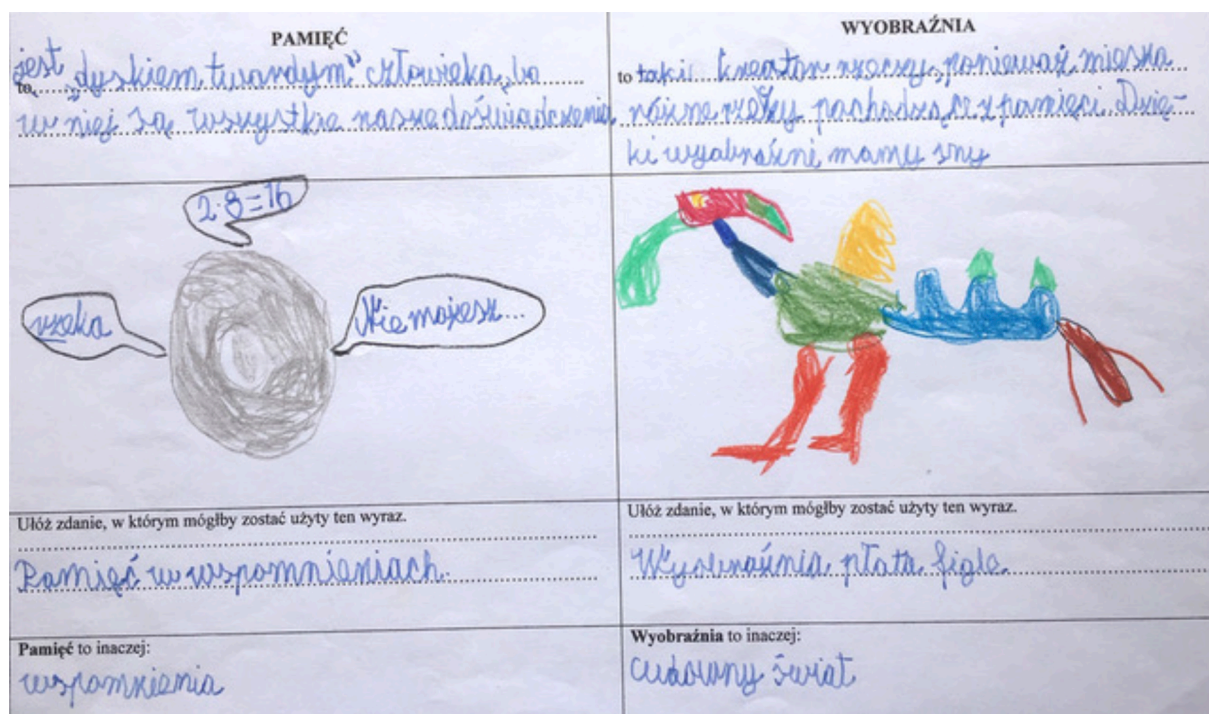 PAMIĘĆ
jest „dyskiem twardym” człowieka, bo
to
w niej są wszystkie nasze doświadczenia
2·8=16
rzeka
Nie możesz...
Ułóż zdanie, w którym mógłby zostać użyty ten wyraz.
Pamięć w wspomnieniach.
Pamięć to inaczej:
wspomnienia
WYOBRAŹNIA
to taki kreator rzeczy, ponieważ miesza
różne rzeczy pochodzące z pamięci. Dzię-
ki wyobraźni mamy sny
Ułóż zdanie, w którym mógłby zostać użyty ten wyraz.
Wyobraźnia płata figle.
Wyobraźnia to inaczej:
cudowny świat